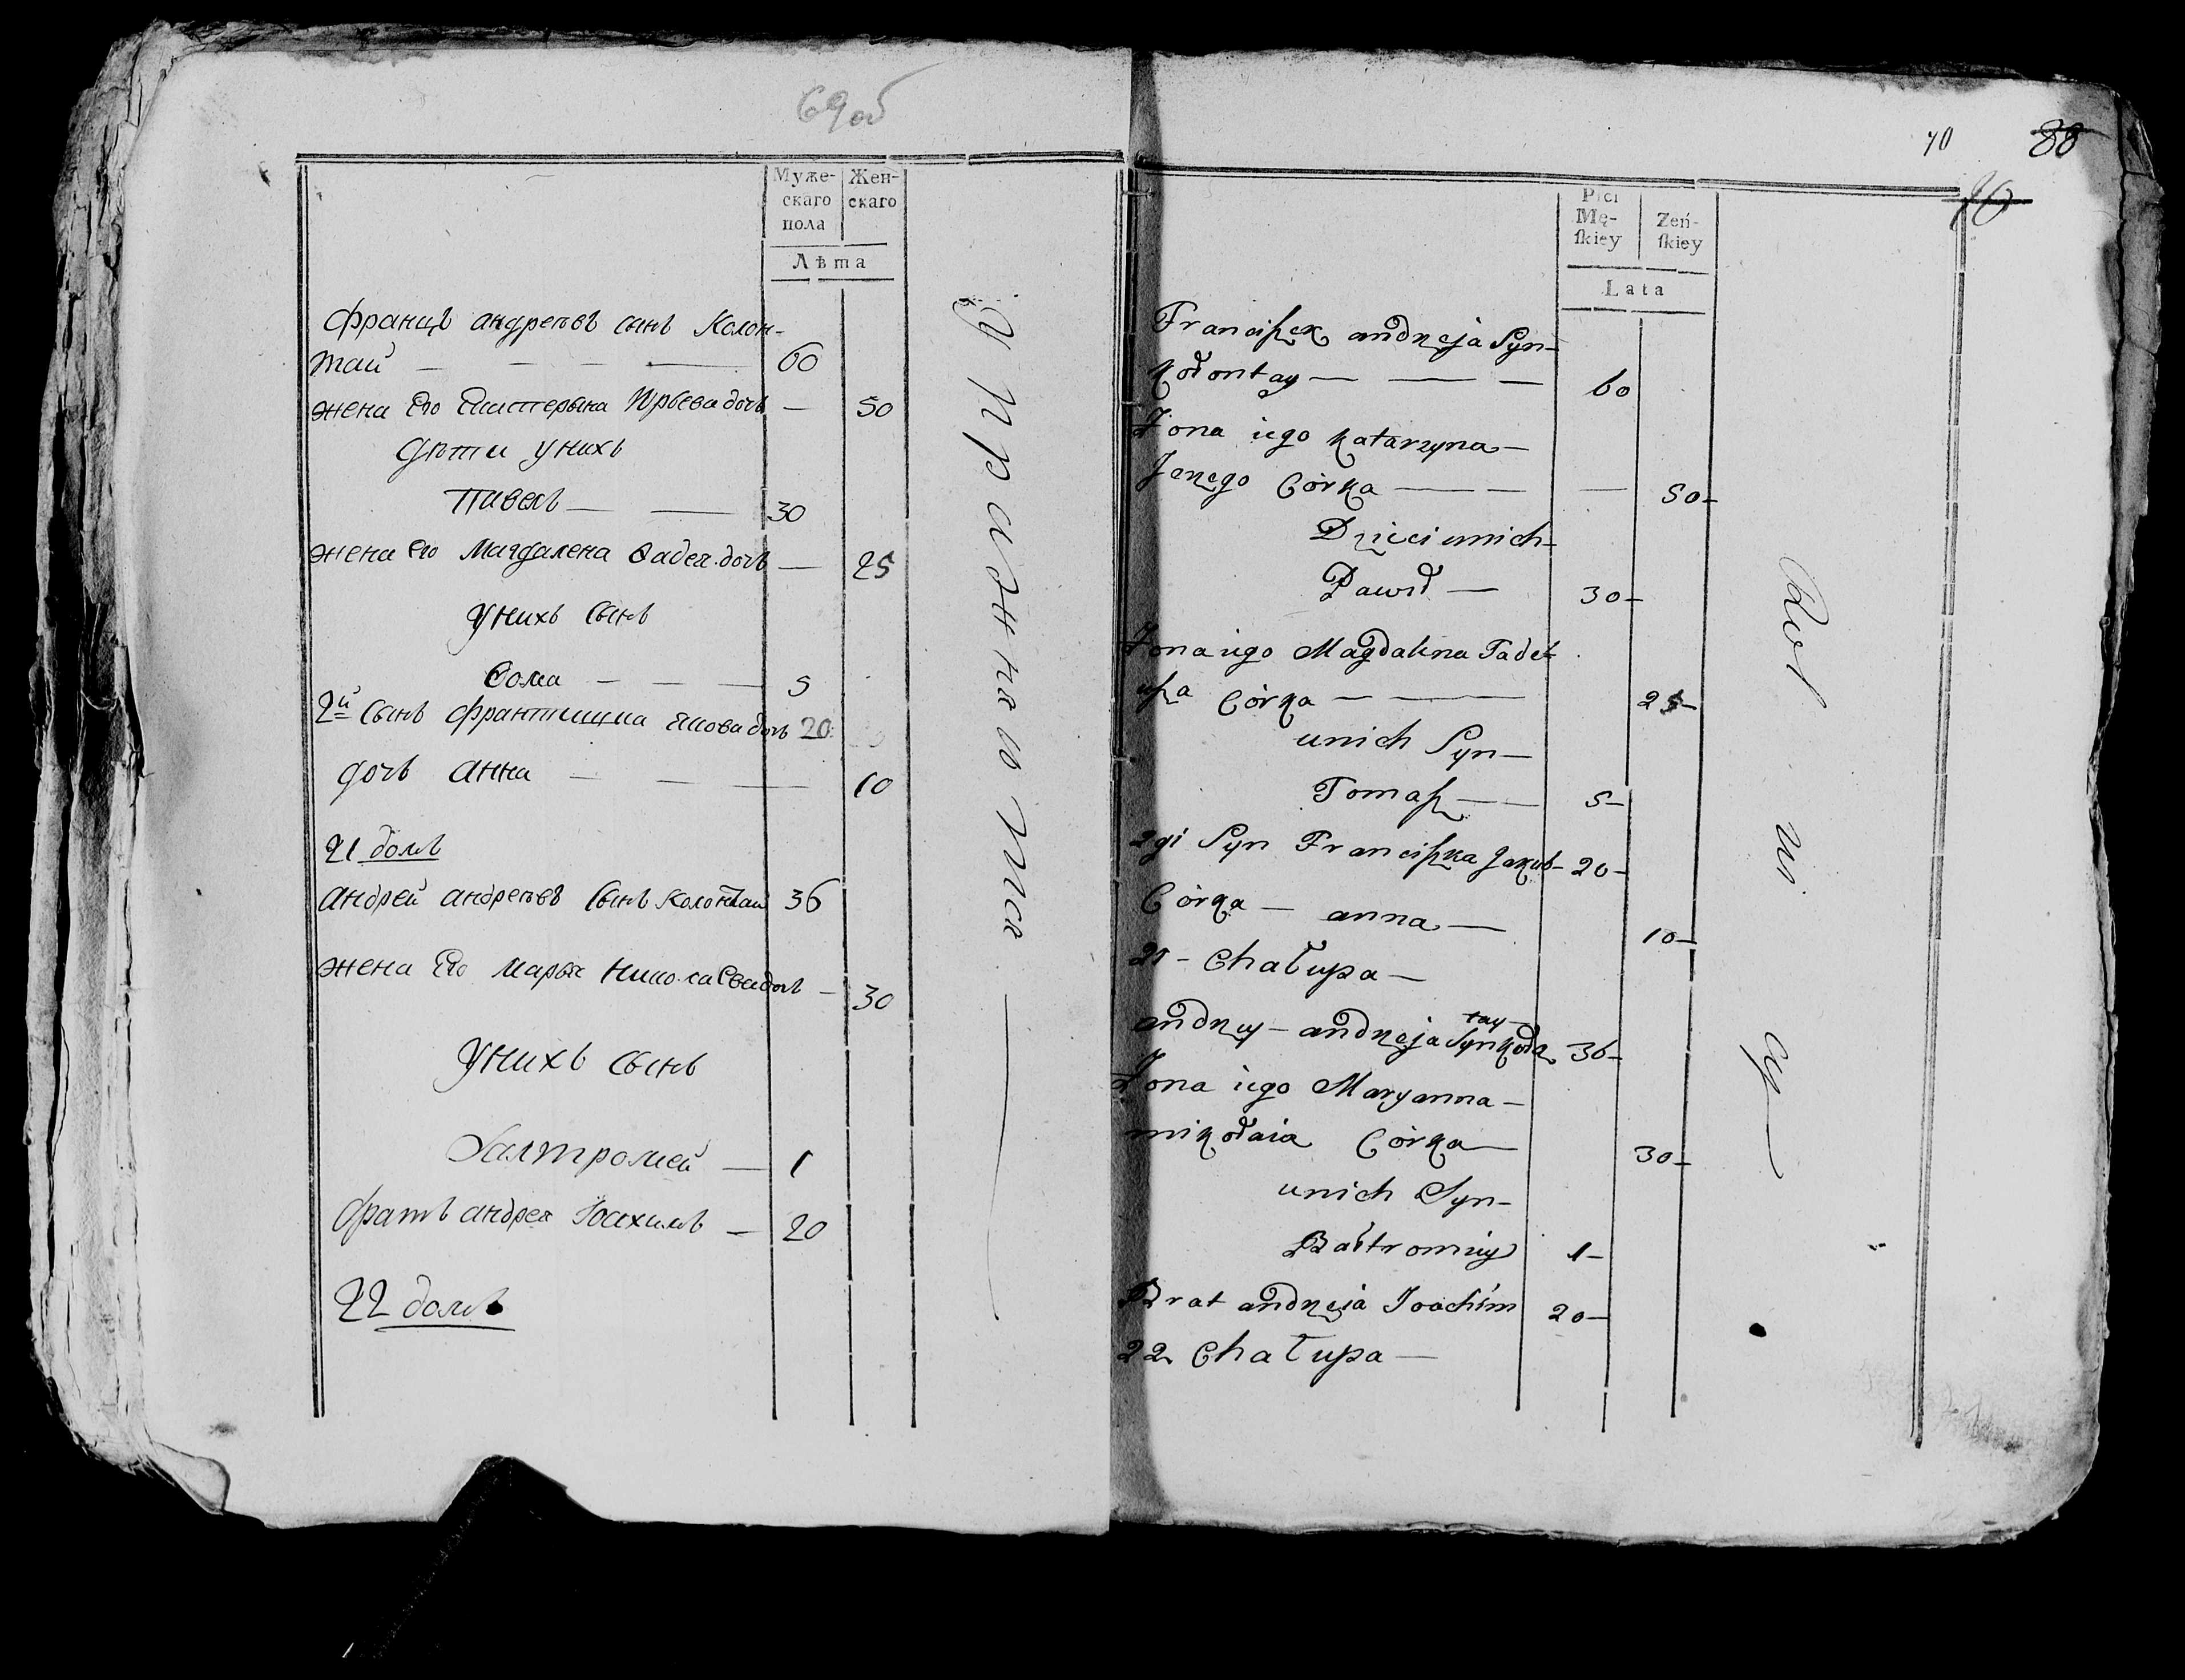 69 об
Муже-
скаго
пола
Жен-
скаго
Лѣта
Францъ Андреевъ сынъ Колон-
тай — — — — 60
жена Его Екатерына Юрьева дочь — 50
дѣти у нихъ
Павелъ — — 30
жена Его Магдалена Фадея дочь — 25
у нихъ сынъ
Фома — — — 5
2й сынъ Францишка Якова дочь 20
дочь Анна — — — 10
21 домъ
Андрей Андреевъ сынъ Колонтай 36
жена Его Марья Николаева дочь — 30
у нихъ сынъ
Балтромей — 1
братъ Андрея Іоахимъ — 20
22 домъ
У Пра
70
88
70
Płci
Mę-
ſkiey
Zeń-
ſkiey
Lata
Franciszek andrzeja Syn —
Kołontay — — — 60
Zona iego Katarzyna —
Jerzego Córka — — — 50 —
Dzieci unich —
Paweł — 30 —
Zona iego Magdalena Tade-
usza Córka — — 25 —
unich Syn —
Tomasz — — 5 —
2gi Syn Franciszka Jakub — 20 —
Córka — anna — 10 —
21 — Chałupa —
andrzey — andrzeja Syn Koła 36 —
tay —
Zona iego Maryanna —
mikołaia Córka — 30 —
unich Syn —
Bałtromiey 1 —
Brat andrzeja Joachim 20 —
22 Chałupa —